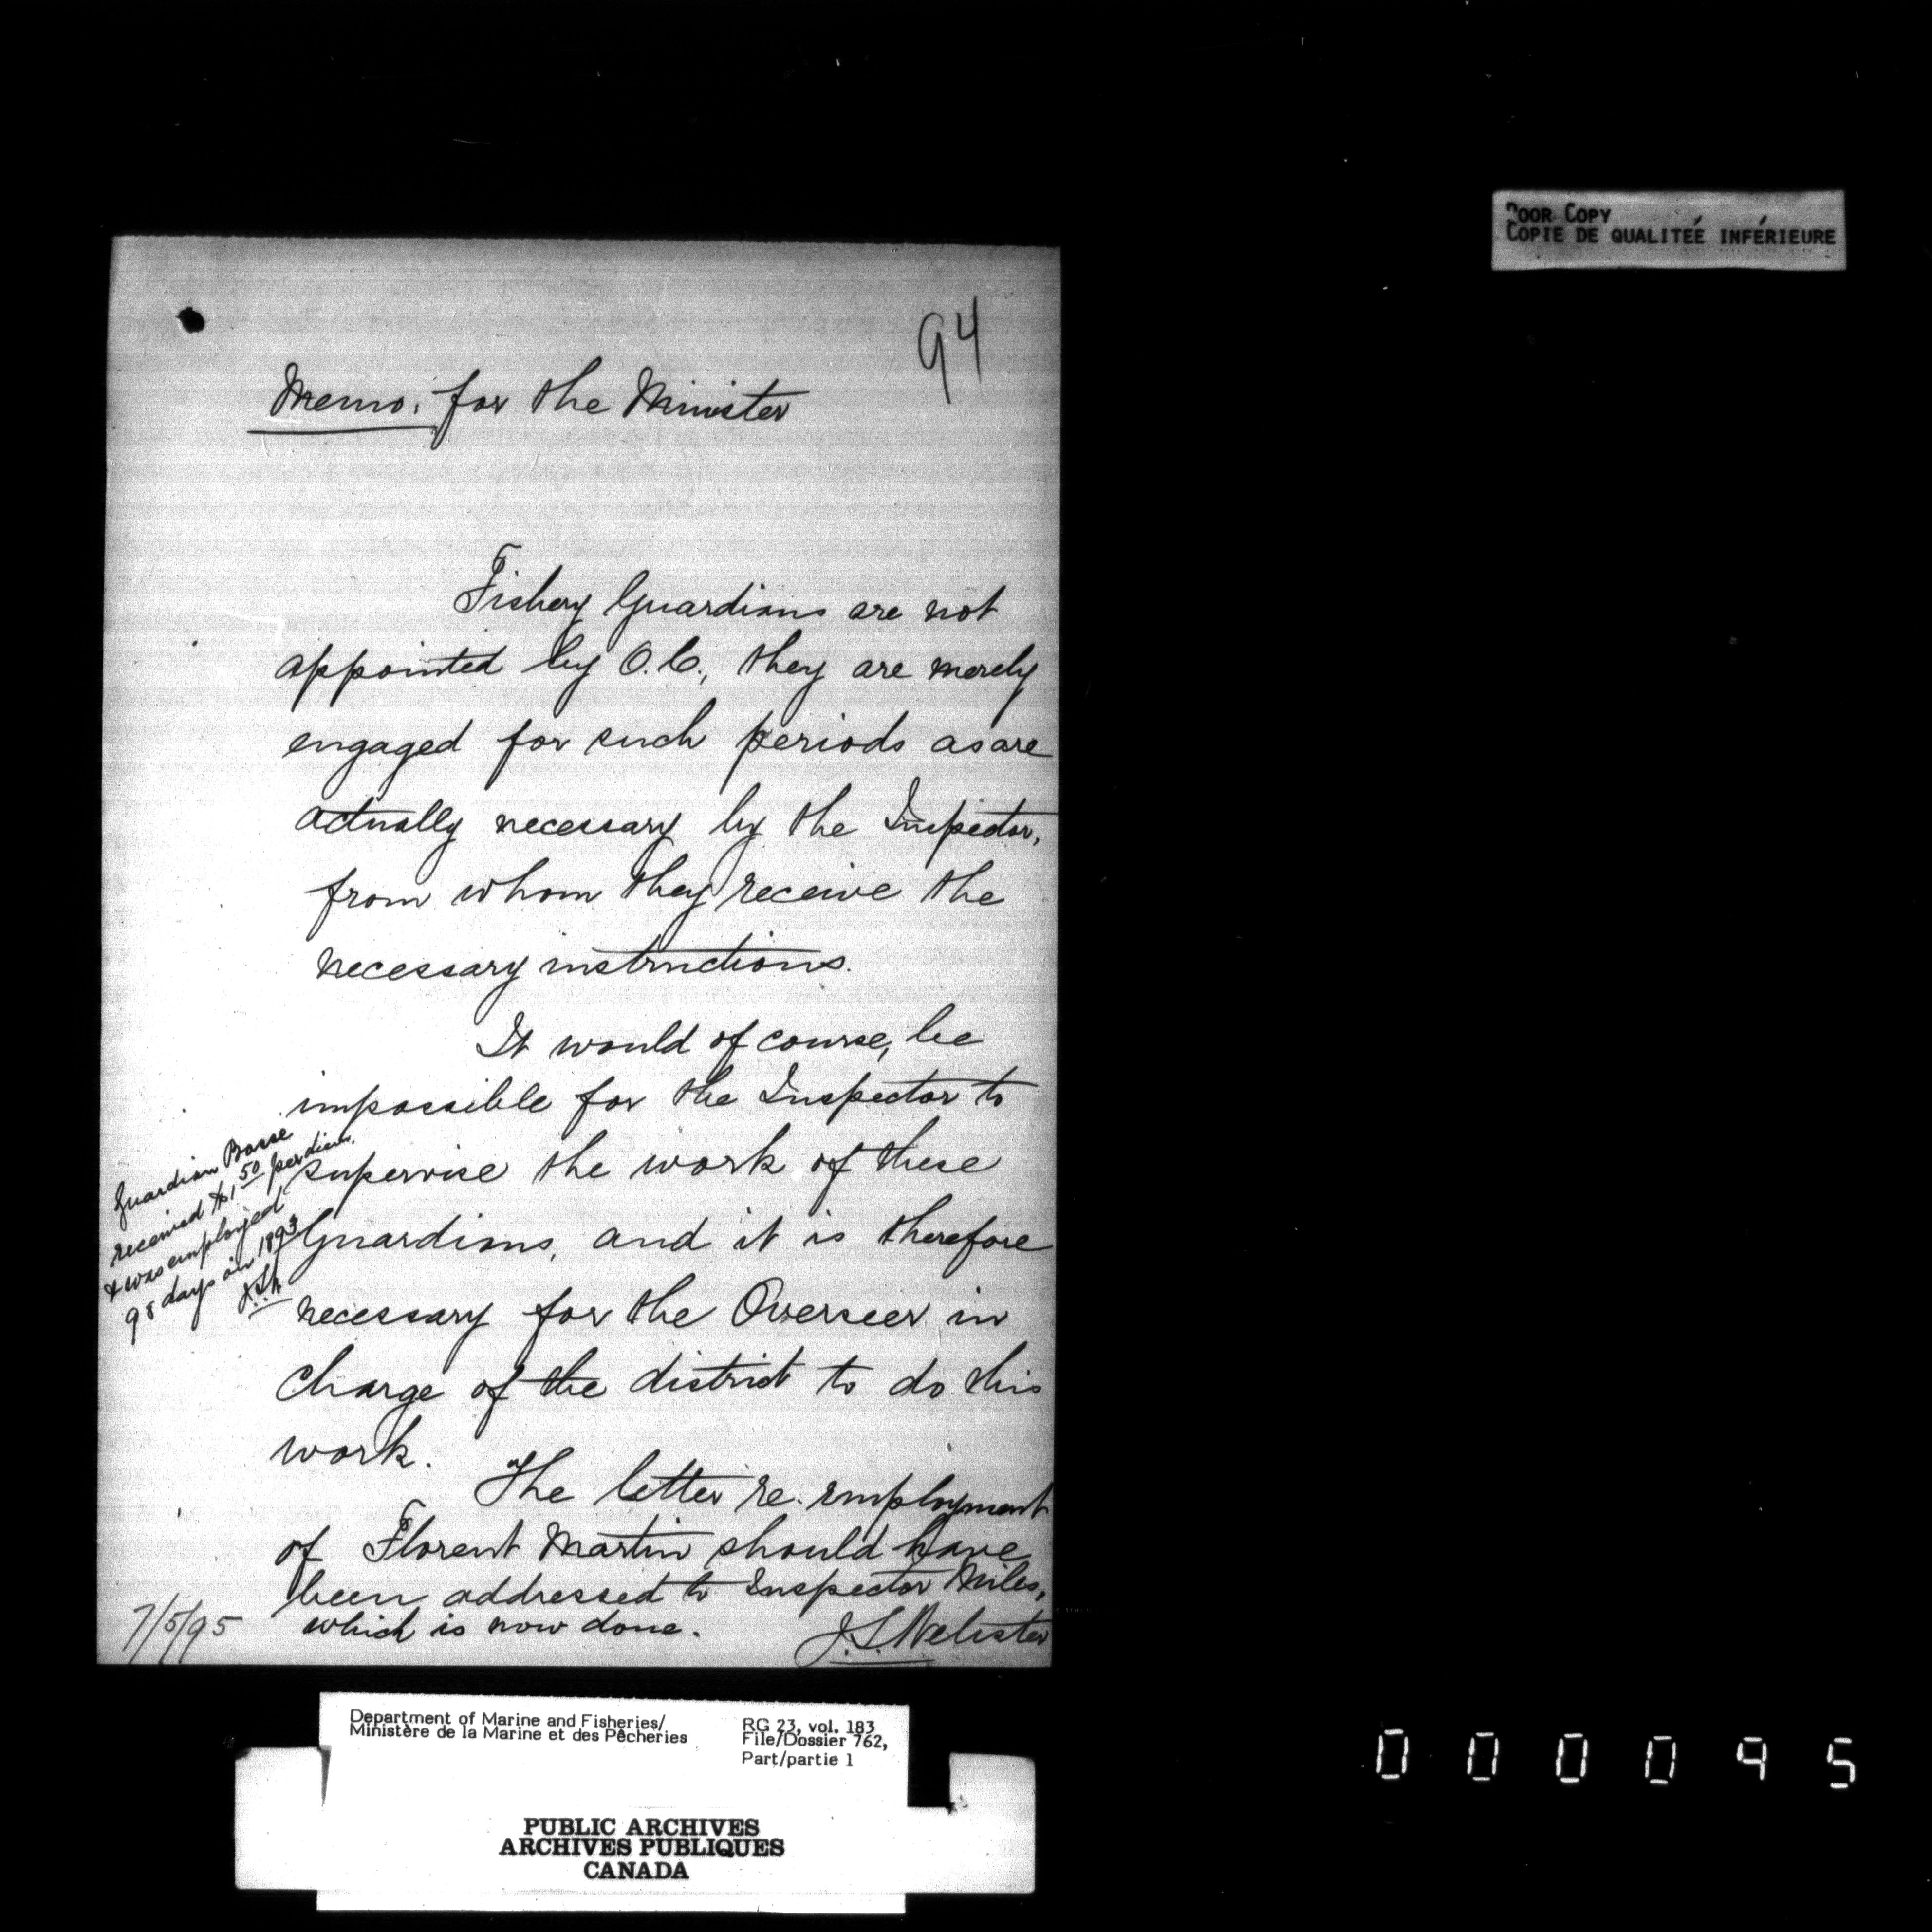 POOR COPY
COPIE DE QUALITEÉ INFÉRIEURE
94
Memo. for the Minister
Fishery Guardians are not
appointed by O.C., they are merely
engaged for such periods as are
actually necessary by the Inspector,
from whom they receive the
necessary instructions.
It would of course, be
impossible for the Inspector to
supervise the work of these
Guardians, and it is therefore
necessary for the Overseer in
charge of the district to do this
work.
The letter re. employment
of Florent Martin should have
been addressed to Inspector Miles,
which is now done.
J.S. Webster
7/5/95
Guardian Bosse
received $1.50 per diem.
& was employed
98 days in 1893
Department of Marine and Fisheries/
Ministère de la Marine et des Pêcheries
RG 23, vol. 183
File/Dossier 762,
Part/partie 1
PUBLIC ARCHIVES
ARCHIVES PUBLIQUES
CANADA
000095